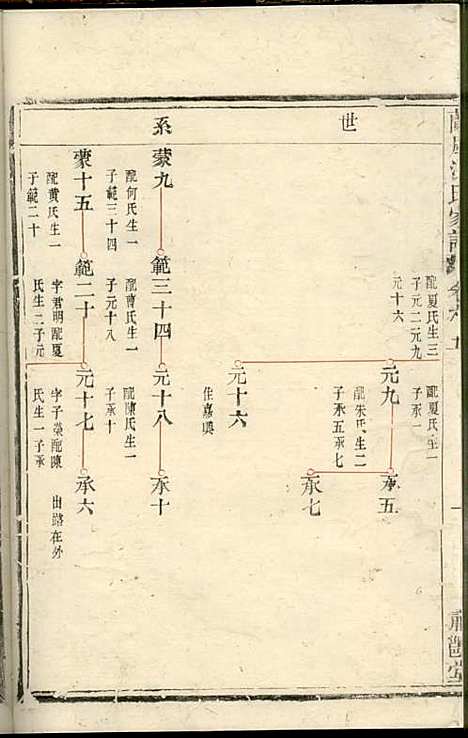 世
系
配夏氏生三
子元二元九
元十六
元九
配夏氏生一
子承一
承五
配朱氏生二
子承五承七
承七
元十六
住嘉興
蒙九
配何氏生一
子範三十四
範三十四
配南氏生一
子元十八
元十八
配陳氏生一
子承十
承十
蒙十五
配黃氏生一
子範二十
範二十
字君明配夏
氏生二子元
元十七
字子榮配陳
氏生一子承
承六
出路在外